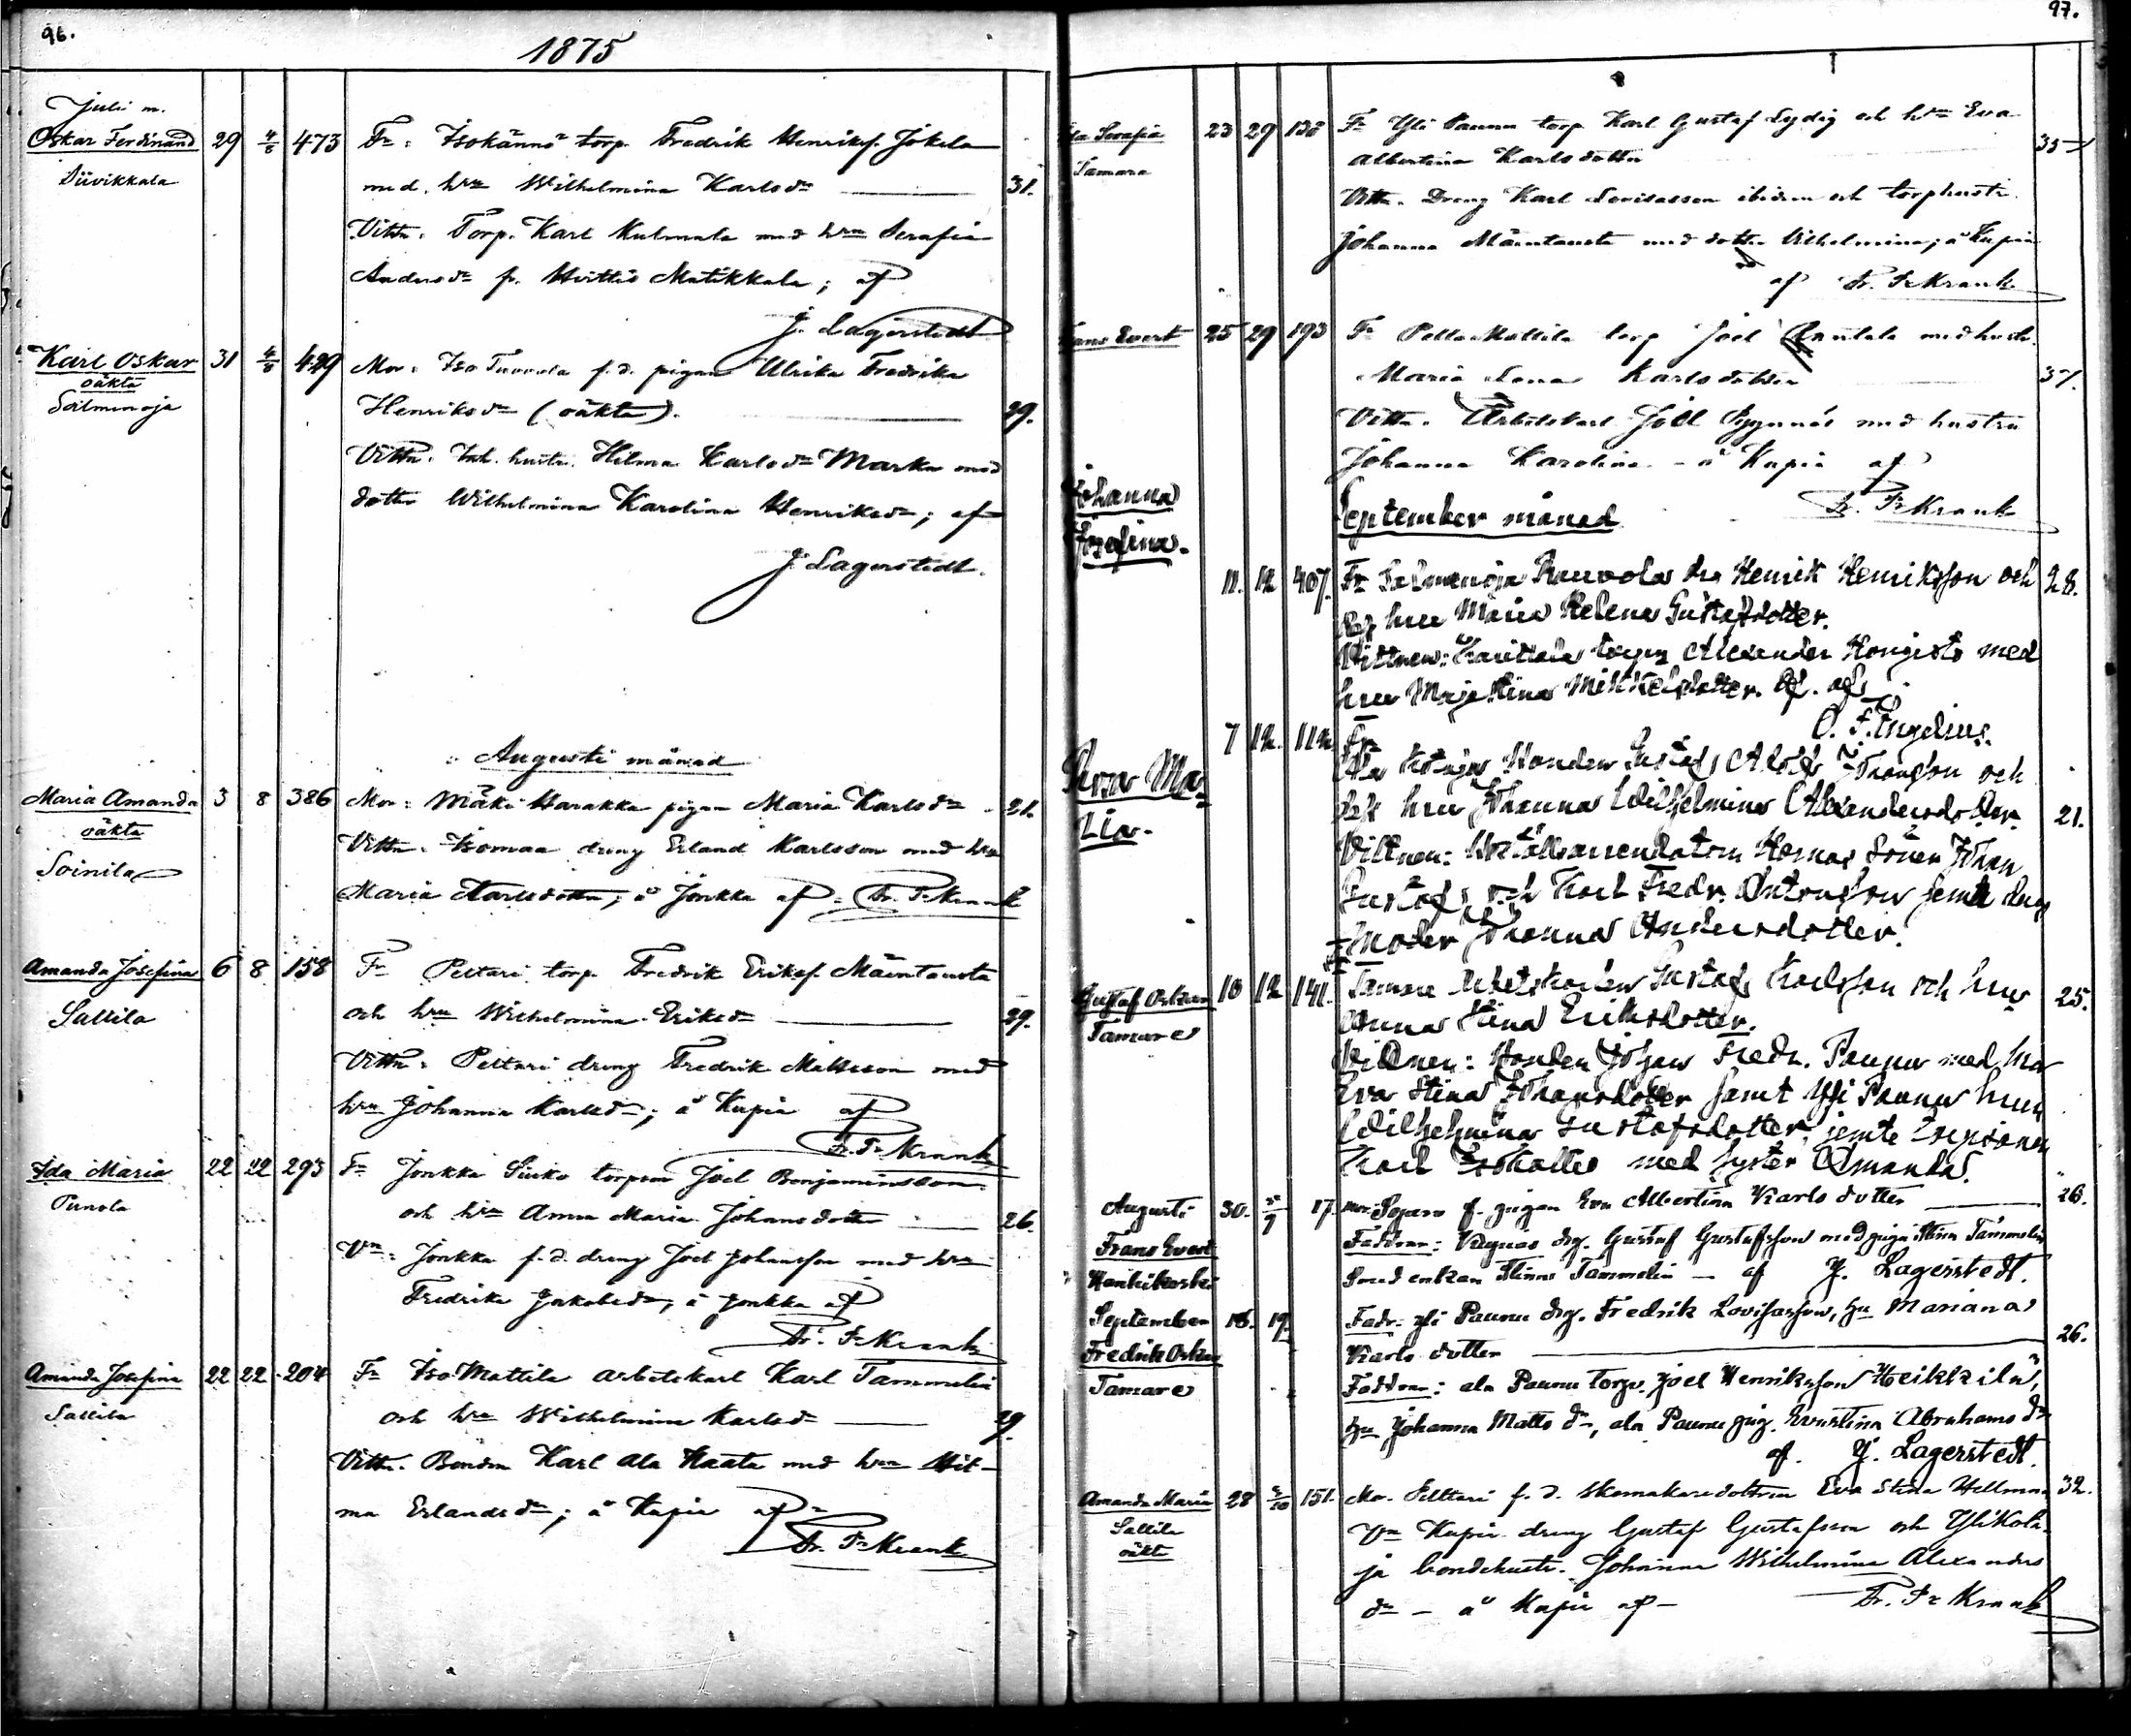 96.
1875
Juli m.
Oskar Ferdinand 29 4/8 473 Fr: Isohännö torp. Fredrik Henriksf. Jokela
Siivikkala med hru Wilhelmina Karlsdr 31.
Vittn. Torp. Karl Kulmala med hru Serafia
Andersdr fr. Hvittis Matikkala; af
J. Lagerstedt
Karl Oskar 31 4/8 429 Mor: Iso Tuvvala f.d. pigan Ulrika Fredrika
oäkta
Salmenoja Henriksdr (oäkta). 29.
Vittn. Inh. hustr. Hilma Karlsdr Marka med
dotter Wilhelmina Karolina Henriksdr; af
J. Lagerstedt.
Augusti månad
Maria Amanda 3 8 386 Mor: Mäki Harakka pigan Maria Karlsdr 21.
oäkta
Soinila
Vittn. Isomaa dreng Erland Karlsson med hru
Maria Karlsdotter; å Jonkka af Fr. Fr. Krank
Amanda Josefina 6 8 158 Fr Peltari torp. Fredrik Eriksf. Mäentausta
Sallila och hru Wilhelmina Eriksdr 29.
Vittn: Peltari dreng Fredrik Mattsson med
hru Johanna Karlsdr; å Kupia af
Fr. Fr. Krank
Ida Maria 22 22 293 Fr Jonkka Sinko torparn Joel Benjaminsson
Punola och hru Anna Maria Johansdotter 26.
Vn: Jonkka f.d. dreng Joel Johansson med hru
Fredrika Jakobsdr, å Jonkka af
Fr. Fr. Krank
Amanda Josefina 22 22 204 Fr Iso Mattila arbetskarl Karl Tammelin
Sallila och hru Wilhelmina Karlsdr 29.
Vittn. Bonden Karl Ala Kaata med hru Hil-
ma Erlandsdr; å Kupia af
Fr. Fr. Krank
97.
Ida Serafia 23 29 138 Fr Yli Paunu torp. Karl Gustaf Lydig och hru Eva
Tamare Albertina Karlsdotter 35
Vittn. Dreng Karl Lovisasson ibidem och torphustr.
Johanna Mäentausta med dotter Vilhelmina; å Kupia
af Fr. Fr. Krank
Frans Evert 25 29 193 Fr Pella Mattila torp Joel Rantala med hustr.
Maria Lena Karlsdotter 37.
Vittn. Arbetskarl Joel Ryynnäs med hustru
Johanna Karolina - å Kupia af
Fr. Fr. Krank
September månad
Johanna
Josefina.
11. 12 407. Fr Salmenoja Rauvola Henrik Henriksson och 28.
hru Maria Helena Gustafsdotter.
Vittnen: torp Alexander Hongisto med
hru Maja Stina Mikkelsdotter. af
O. F. Ingelius.
7 12. 112. Fr
Ala Kotaja Bonden Gustaf Adolf Fransson och
hru Johanna Wilhelmina Alexandersdotter. 21.
Vittnen: Söner Johan
Gustaf och Karl Fredr. Antonsson jemte deras
moder Johanna Andersdotter.
Gustaf Oskar 10 12 141. Tamare Arbetskarlen Gustaf Karlsson och hru 25.
Tamare Anna Stina Eriksdotter.
Vittnen: Bonden Johan Fredr. Paunu med hru
Eva Stina Johansdotter samt Yli Paunu hru
Wilhelmina Gustafsdotter, jemte
Karl Isokallio med syster Amanda.
Augusti 30. /9 17. mor. f. pigan Eva Albertina Karlsdotter 26.
Frans Evert Faddrar: drg. Gustaf Gustafsson med piga Stina Tammelin
Hanhikoski Smedenkan Stina Tammelin — af J. Lagerstedt.
September 16. 19. Fadr: yli Paunu drg. Fredrik Lovisasson, hu Mariana
Fredrik Oskar Karls dotter 26.
Tamare Faddrar: ala Paunu torp. Joel Henriksson Heikkilä,
hu Johanna Matts dr, ala Paunu pig. Evastina Abrahams dr
af. J. Lagerstedt.
Amanda Maria 28 /10 151. Mor. Pelttari f.d. skomakaredottren Eva Stina Hellman 32.
Sallila Vn Kupia dreng Gustaf Gustafsson och Ylikola-
oäkta ja bondehustr. Johanna Wilhelmina Alexanders
dr - å Kupia af - Fr. Fr. Krank